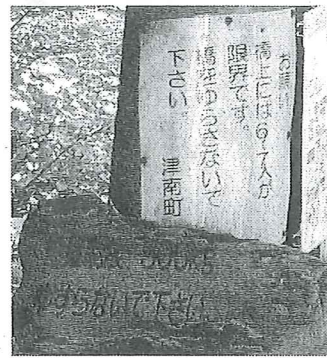 お願い
・橋上には6,7人が
限界です。
橋をゆらさないで
下さい。
津南町
ゆすらないで下さい